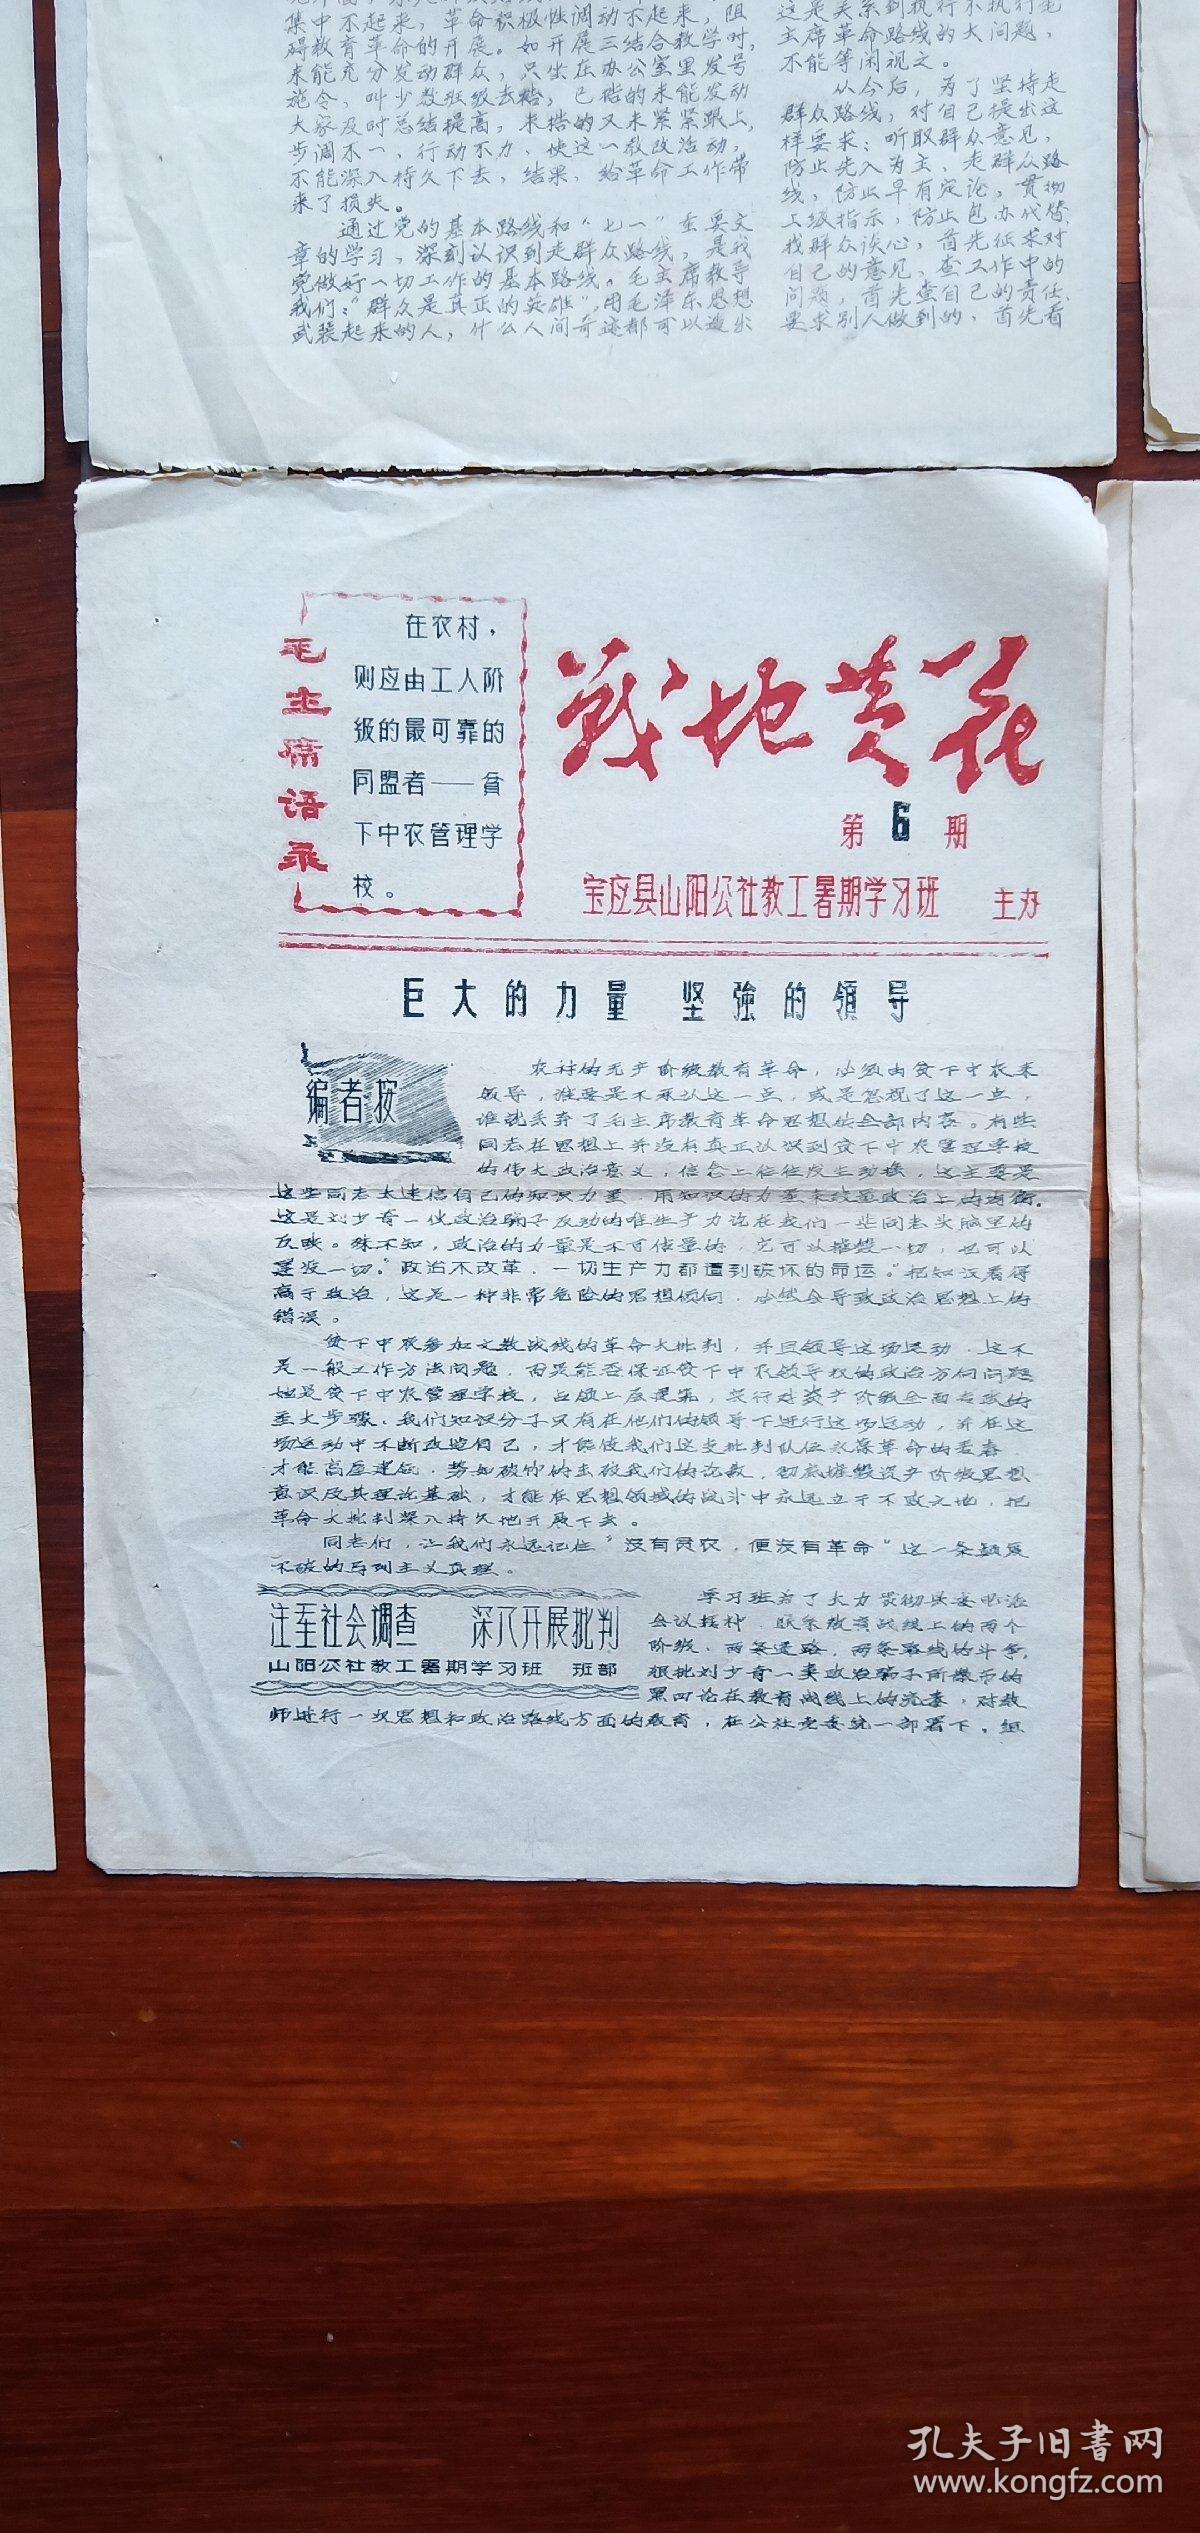 集中不起来，革命积极性调动不起来，阻
碍教育革命的开展。如开展三结合教学时，
未能充分发动群众，只坐在办公室里发号
施令，叫少数班级去搭，已搭的未能发动
大家及时总结提高，未搭的又未紧紧跟上，
步调不一，行动不力，使这一教改活动，
不能深入持久下去，结果，给革命工作带
来了损失。
通过党的基本路线和“七一”重要文
章的学习，深刻认识到走群众路线，是我
党做好一切工作的基本路线。毛主席教导
我们：“群众是真正的英雄”，用毛泽东思想
武装起来的人，什么人间奇迹都可以造出
这是关系到执行不执行毛
主席革命路线的大问题，
不能等闲视之。
从今后，为了坚持走
群众路线，对自己提出这
样要求：听取群众意见，
防止先入为主，走群众路
线，防止早有定论，贯彻
上级指示，防止包办代替，
找群众谈心，首先征求对
自己的意见，查工作中的
问题，首先查自己的责任，
要求别人做到的，首先看
毛主席语录
在农村，
则应由工人阶
级的最可靠的
同盟者——贫
下中农管理学
校。
战地黄花
第6期
宝应县山阳公社教工暑期学习班 主办
巨大的力量 坚强的领导
编者按
农村的无产阶级教育革命，必须由贫下中农来
领导，谁要是不承认这一点，或是忽视了这一点，
谁就丢弃了毛主席教育革命思想的全部内容。有些
同志在思想上并没有真正认识到贫下中农管理学校
的伟大政治意义，信念上往往发生动摇，这主要是
这些同志太迷信自己的知识力量，用知识的力量来较量政治上的均衡，
这是刘少奇一伙政治骗子反动的唯生产力论在我们一些同志头脑里的
反映。殊不知，政治的力量是不可估量的，它可以摧毁一切，也可以
淹没一切。“政治不改革，一切生产力都遭到破坏的命运。”把知识看得
高于政治，这是一种非常危险的思想倾向，必然会导致政治思想上的
错误。
贫下中农参加文教战线的革命大批判，并且领导这场运动，这不
是一般工作方法问题，而是能否保证贫下中农领导权的政治方向问题
她是贫下中农管理学校，占领上层建筑，实行对资产阶级全面专政的
重大步骤，我们知识分子只有在他们的领导下进行这场运动，并在这
场运动中不断改造自己，才能使我们这支批判队伍永葆革命的青春
才能高屋建瓴，势如破竹的击破我们的论敌，彻底摧毁资产阶级思想
意识及其理论基础，才能在思想领域的战斗中永远立于不败之地，把
革命大批判深入持久地开展下去。
同志们，让我们永远记住“没有贫农，便没有革命”这一条颠扑
不破的马列主义真理。
注重社会调查 深入开展批判
山阳公社教工暑期学习班 班部
学习班为了大力贯彻县委电话
会议精神，联系教育战线上的两个
阶级，两条道路，两条路线的斗争，
狠批刘少奇一类政治骗子所散布的
黑四论在教育战线上的流毒，对教
师进行一次思想和政治路线方面的教育，在公社党委统一部署下，组
孔夫子旧书网
www.kongfz.com